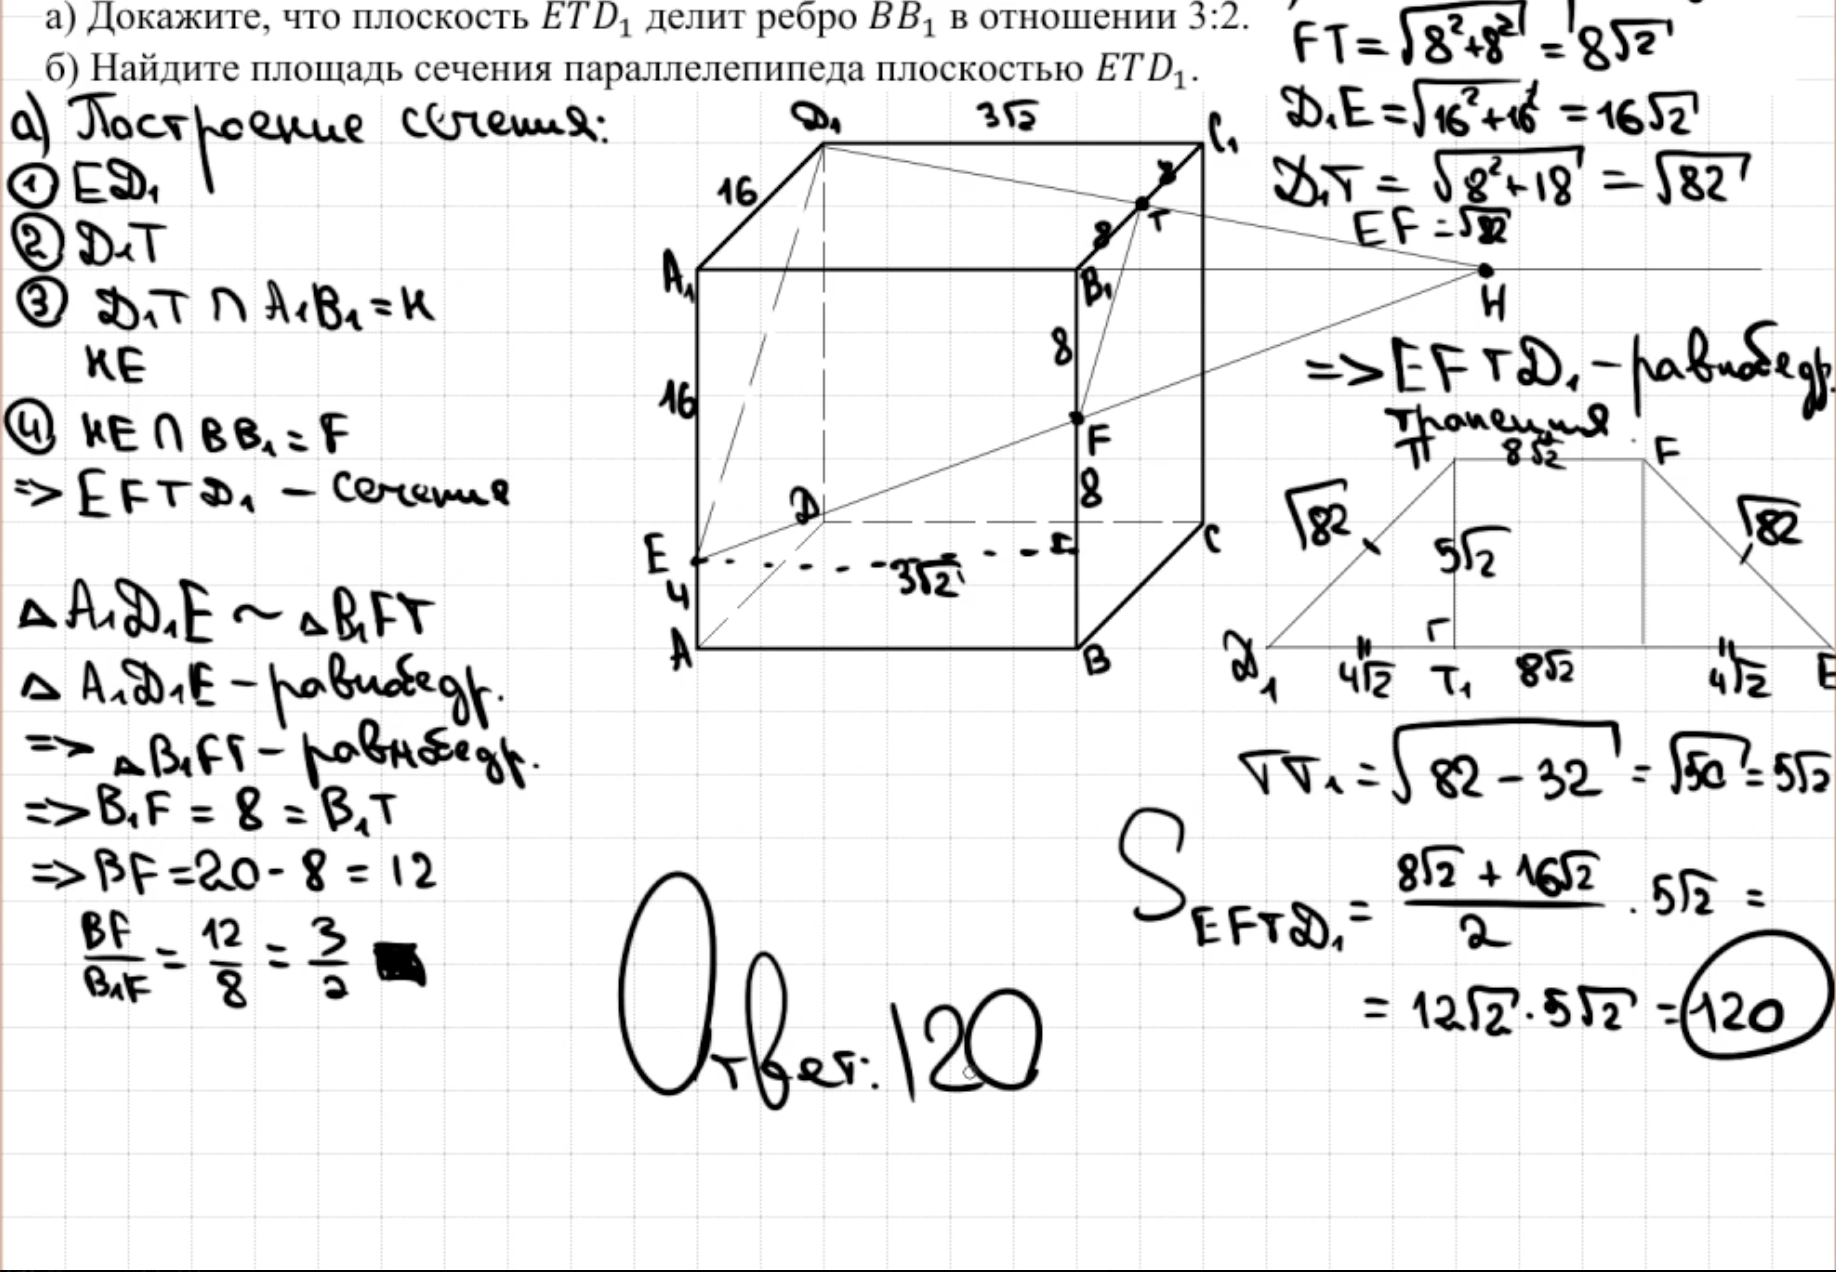 а) Докажите, что плоскость ETD₁ делит ребро BB₁ в отношении 3:2.
б) Найдите площадь сечения параллелепипеда плоскостью ETD₁.
а) Построение сечения:
① ED₁
② D₁T
③ D₁T ∩ A₁B₁ = H
HE
④ HE ∩ BB₁ = F
=> EFTD₁ – сечение
△ A₁D₁E ~ △B₁FT
△ A₁D₁E – равнобедр.
=> △B₁FT – равнобедр.
=> B₁F = 8 = B₁T
=> BF = 20 - 8 = 12
BF/B₁F = 12/8 = 3/2
D₁
3√2
C₁
16
8
T
8
A₁
B₁
H
8
16
F
D
8
E
C
3√2
4
A
B
FT = √8²+8² = 8√2
D₁E = √16²+16² = 16√2
D₁T = √8²+18 = √82
EF = √82
=> EFTD₁ – равнобедр.
трапеция
T 8√2 F
√82
5√2
√82
D₁ 4√2 T₁ 8√2 4√2 E
TT₁ = √82 - 32 = √50 = 5√2
S EFTD₁ = (8√2 + 16√2)/2 · 5√2 =
= 12√2 · 5√2 = 120
Ответ: 120